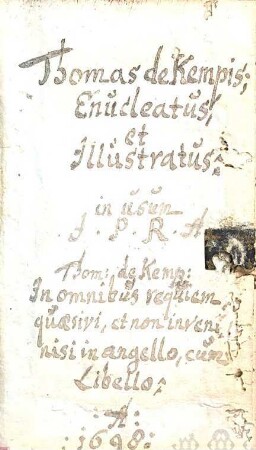 Thomas de Kempis;
Enucleatus,
et
Illustratus:
in usum
J . P . R . A
Thom: de Kemp:
In omnibus requiem
quæsivi, et non inveni
nisi in angello, cum
Libello:
: A:
: 1698: